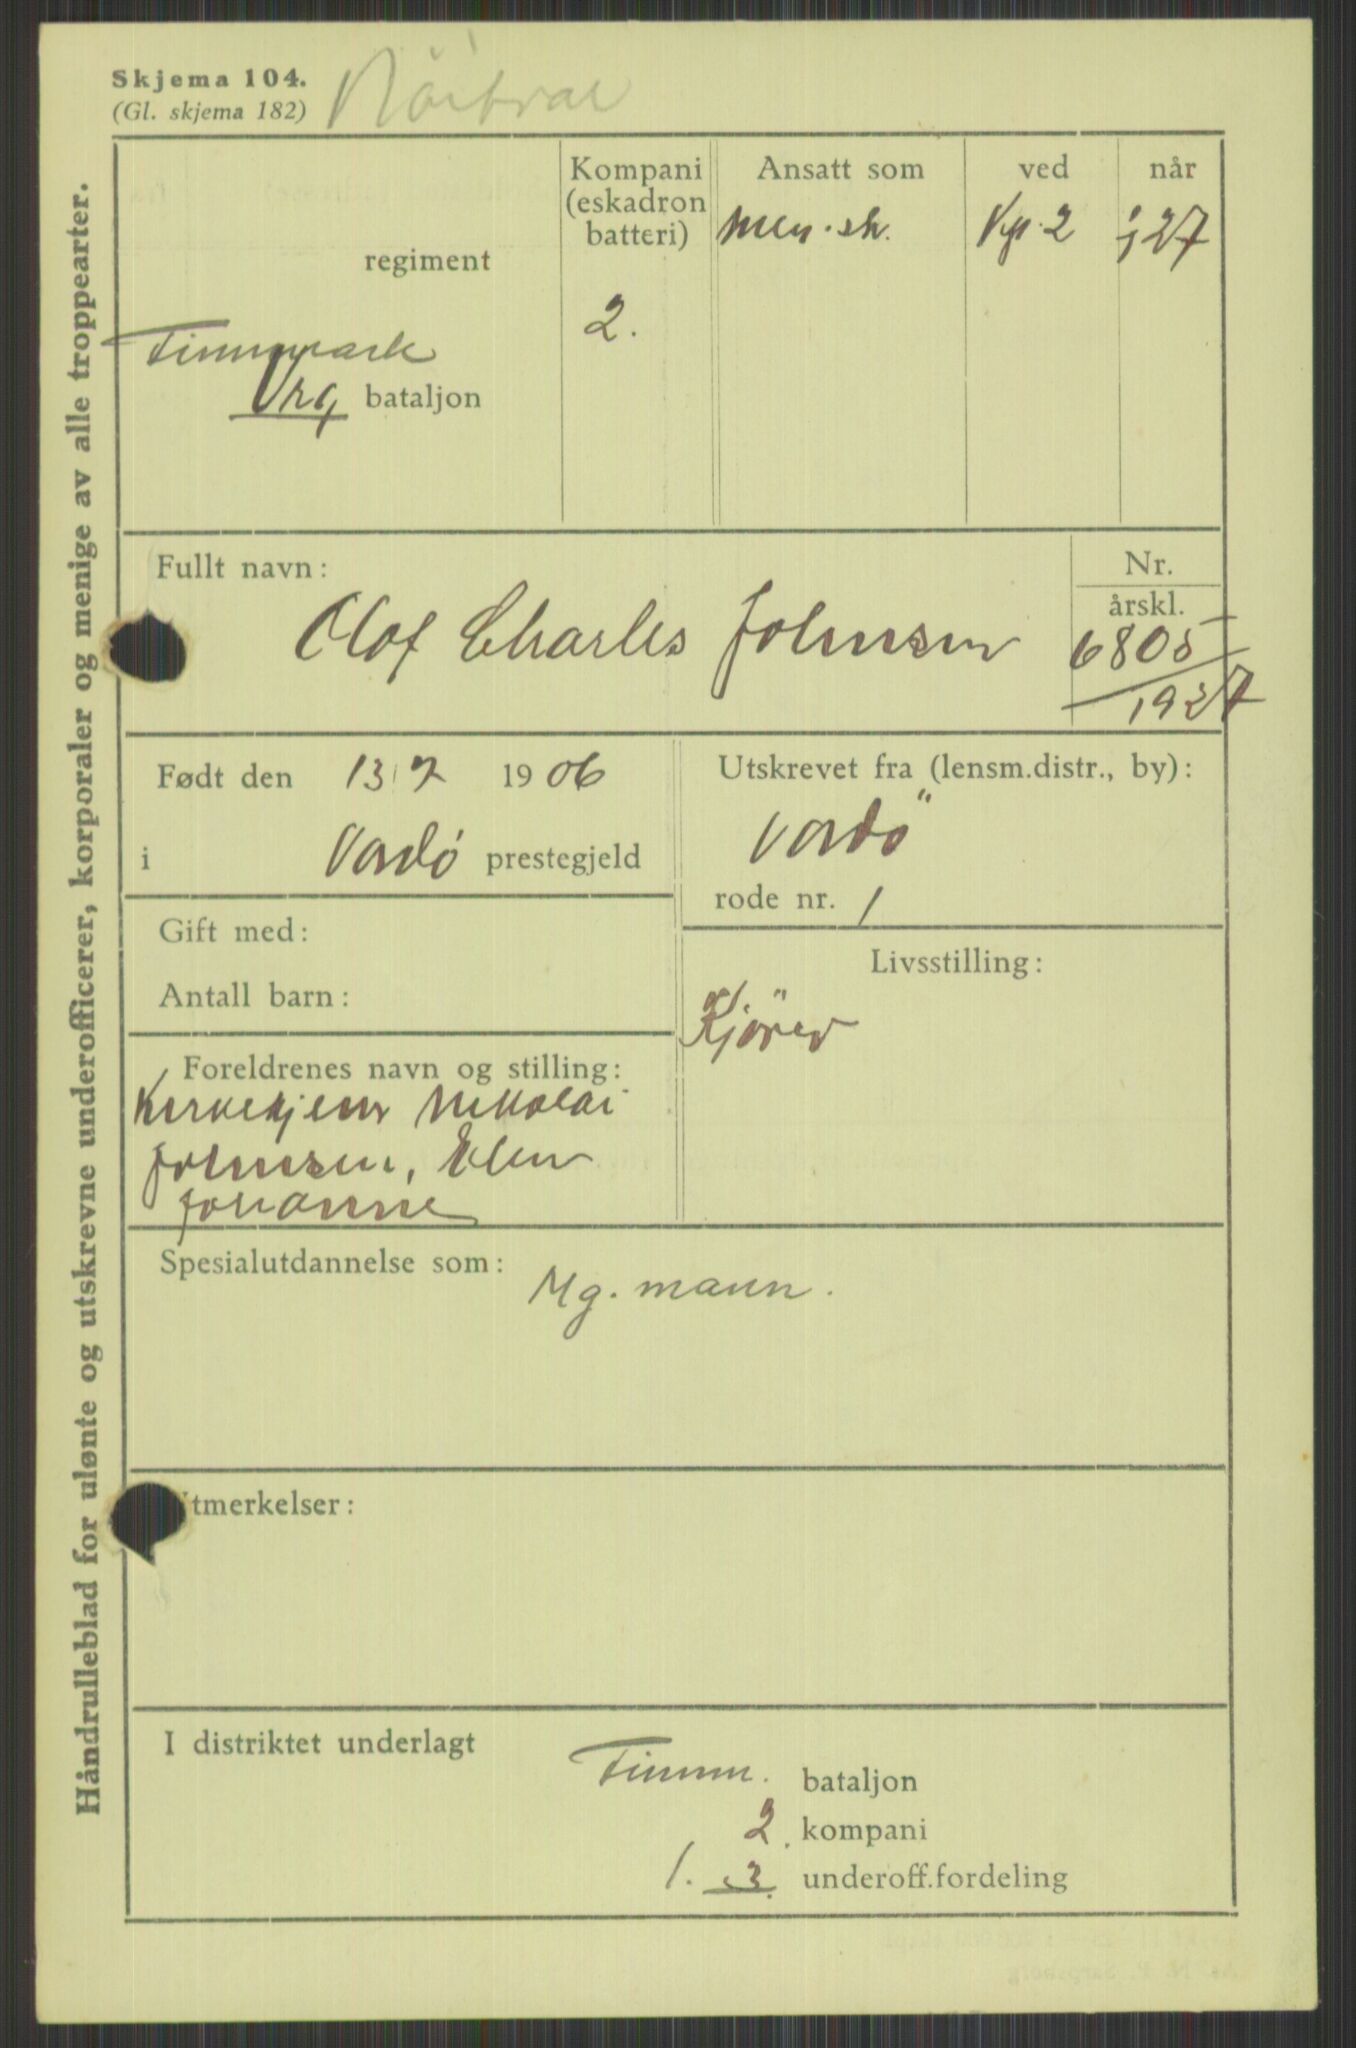 Skjema 104.
(Gl. skjema 182)
Håndrulleblad for ulønte og utskrevne underofficerer, korporaler og menige av alle troppearter.
regiment
Finnmark
bataljon
Kompani
(eskadron
batteri)
2.
Ansatt som
Men. sk.
ved
Kp. 2
når
27
Fullt navn:
Olaf Charles Johnsen
Nr.
årskl.
6805
1927
Født den 13/7 1906
i Vardø prestegjeld
Utskrevet fra (lensm.distr., by):
Vardö
rode nr. 1
Gift med:
Antall barn:
Livsstilling:
Kjörer
Foreldrenes navn og stilling:
Nikolai
Johnsen, Elen
Johanne
Spesialutdannelse som:
Mg. mann.
Utmerkelser:
I distriktet underlagt
Finnm. bataljon
2. kompani
1. 3. underoff.fordeling